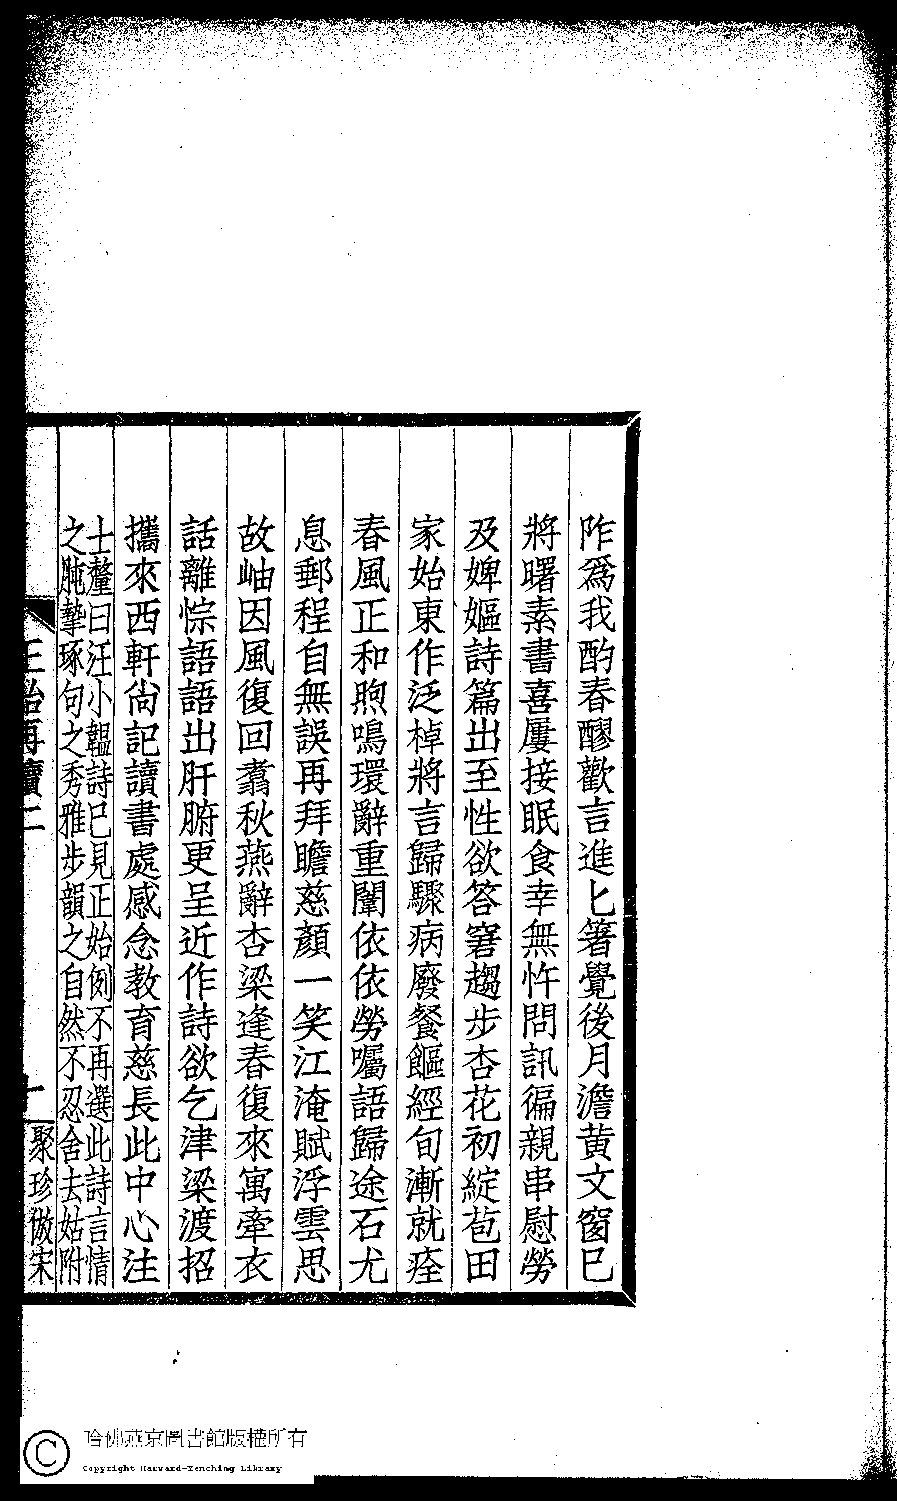 阼爲我酌春醪歡言進匕箸覺後月澹黃文窗已
將曙素書喜屢接眠食幸無忤問訊徧親串慰勞
及婢嫗詩篇出至性欲答窘趨步杏花初綻苞田
家始東作泛棹將言歸驟病廢餐饇經旬漸就痊
春風正和煦鳴環辭重闈依依勞囑語歸途石尤
息郵程自無誤再拜瞻慈顏一笑江淹賦浮雲思
故岫因風復回翥秋燕辭杏梁逢春復來寓牽衣
話離悰語語出肝腑更呈近作詩欲乞津梁渡招
攜來西軒尙記讀書處感念教育慈長此中心注
士釐曰汪小韞詩已見正始例不再選此詩言情
之肫摯琢句之秀雅步韻之自然不忍舍去姑附
正始再續二
聚珍倣宋
哈佛燕京圖書館版權所有
Copyright Harvard-Yenching Library